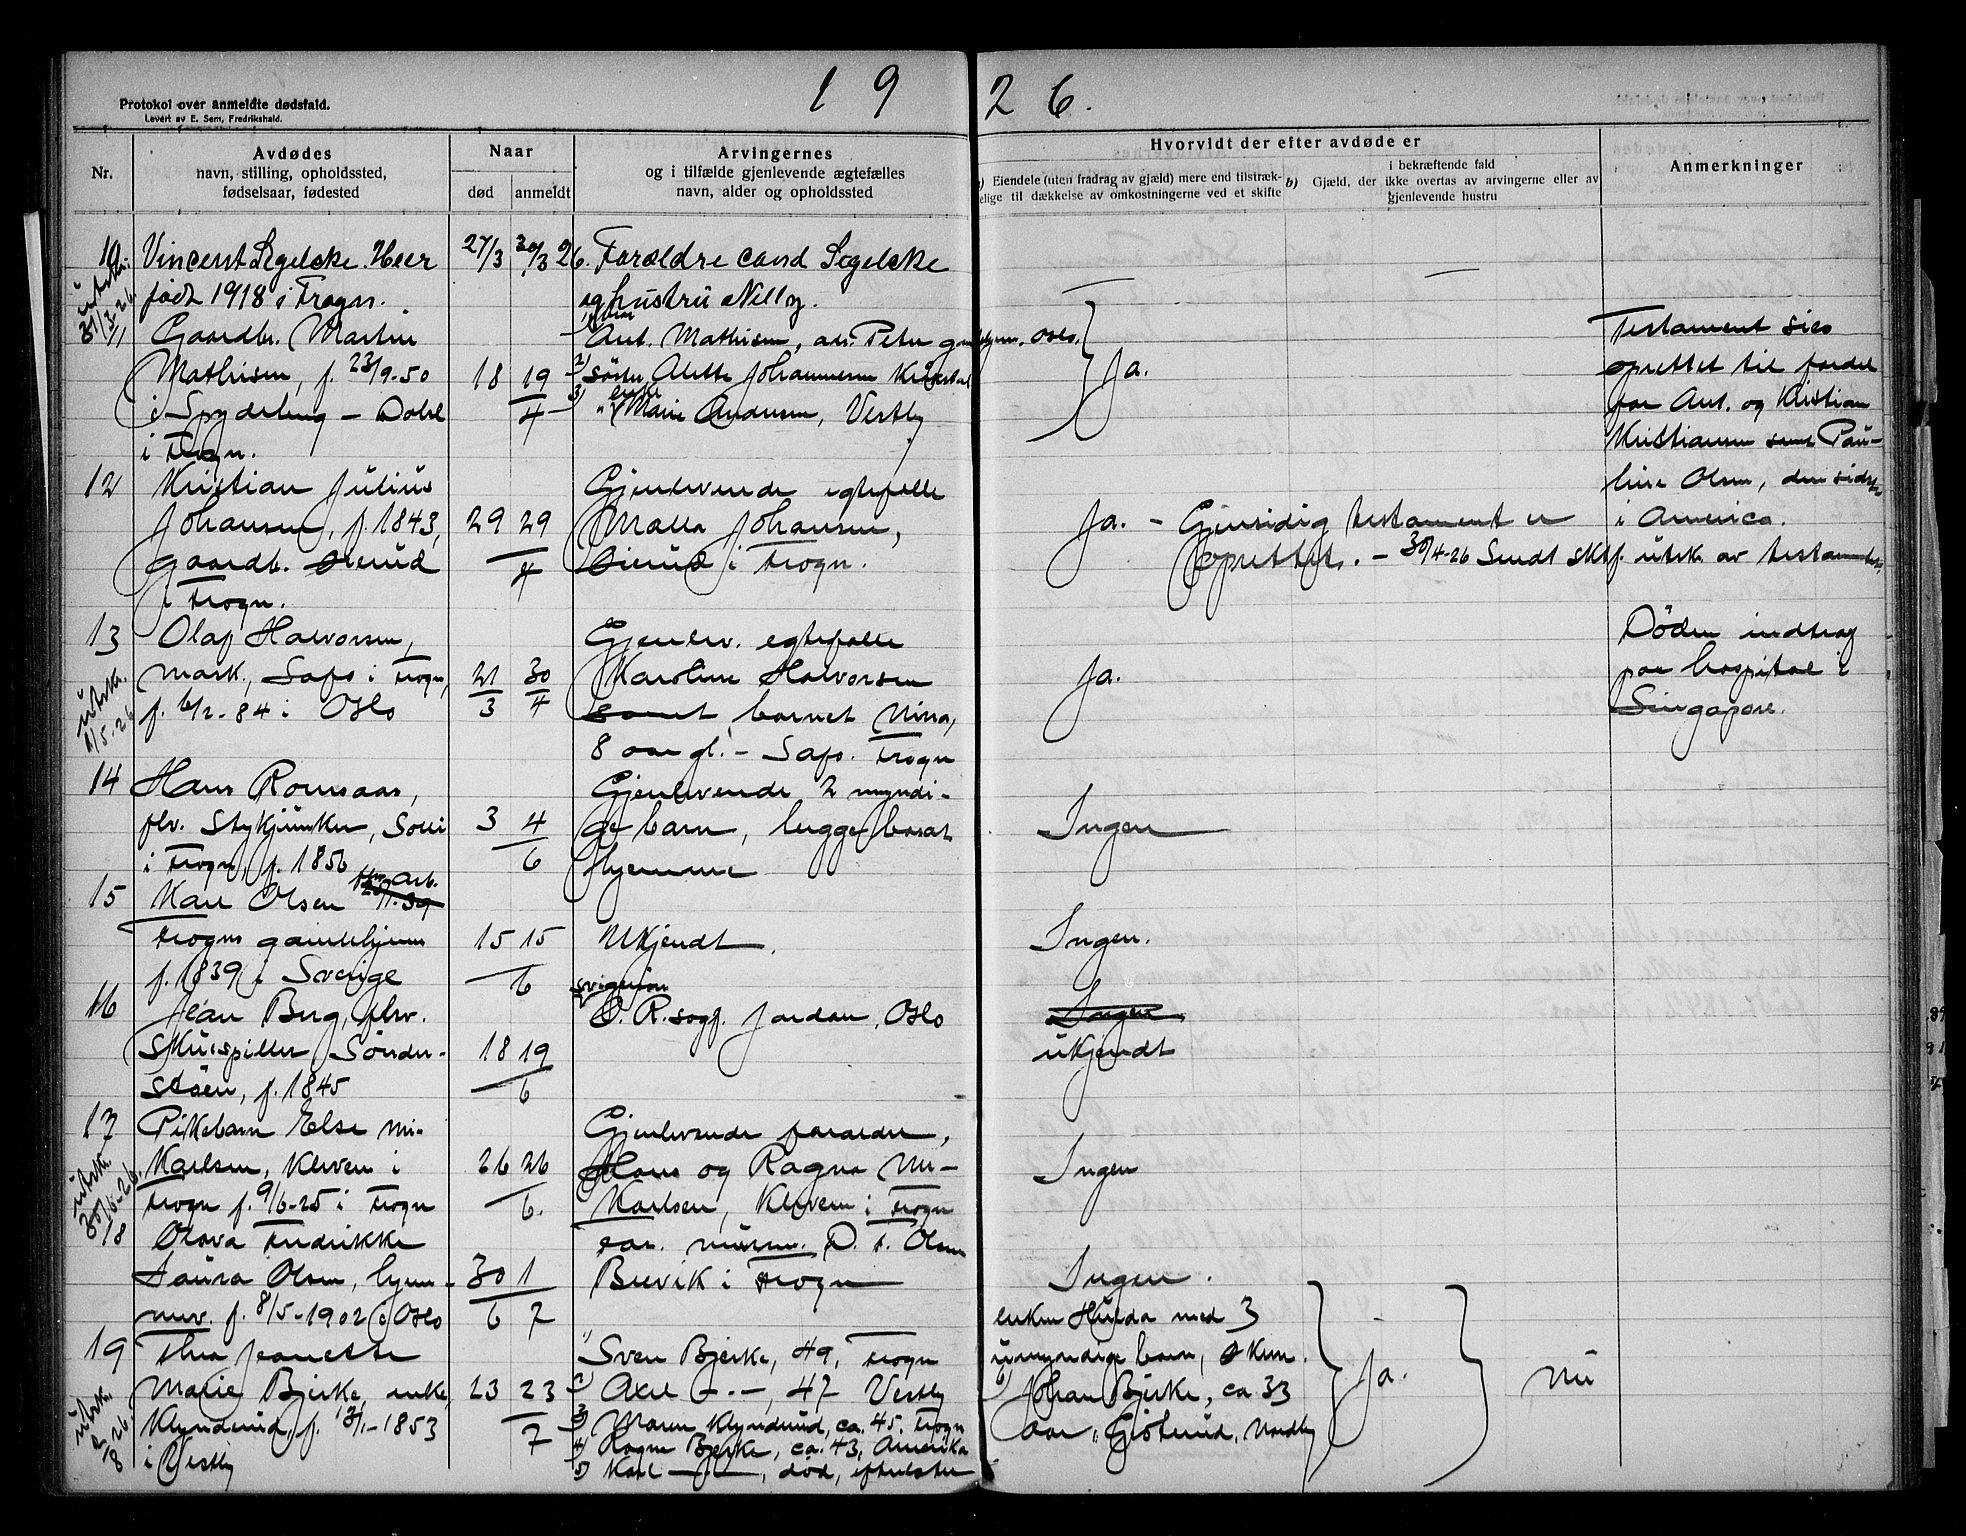 1926.
Protokol over anmeldte dødsfald.
Levert av E. Sem, Fredrikshald.
Nr.
Avdødes
navn, stilling, opholdssted,
fødselsaar, fødested
Naar
død
anmeldt
Arvingernes
og i tilfælde gjenlevende ægtefælles
navn, alder og opholdssted
Hvorvidt der efter avdøde er
a) Eiendele (uten fradrag av gjæld) mere end tilstræk-
kelige til dækkelse av omkostningerne ved et skifte
b) Gjæld, der
i bekræftende fald
ikke overtas av arvingerne eller av
gjenlevende hustru
Anmerkninger
10
utskr.
31/3-26
Vincent Segelcke Heer
født 1918 i Frogn.
27/3
30/3 26.
Forældre cand Segelcke
og hustru Nelly.
—
—
11
Gaardbr. Martin
Mathisen, f. 23/9-50
i Spydeberg – Dal
i Frogn.
18
19
4
Ant. Mathisen, Oslo.
2) søster Alette Johannesen
3) " enke Marie Andersen, Vestby
Ja.
Testament sies
oprettet til fordel
for Ant. og Kristian
Kristiansen samt Pau-
line Olsen, den sidste
i America.
12
Kristian Julius
Johansen, f. 1843,
gaardb.
i Frogn.
29
29
4
Gjenlevende egtefelle
Malla Johansen,
i Frogn.
Ja. – Gjensidig testament er
oprettet. – 30/4-26 Sendt skf. utskr. av testamentet.
13
utskr.
1/5-26
Olaf Halvorsen,
mask., Safs i Frogn,
f. 6/2-84 i Oslo
21
3
30
4
Gjenlev. egtefelle
Karoline Halvorsen
samt barnet Nina,
8 aar gl. – Safs. Frogn
Ja.
Døden indtraf
paa hospital i
Singapore.
14
Hans Romsaas,
flv. Stykjunker, Solli
i Frogn, f. 1856
3
4
6
Gjenlevende 2 myndi-
ge barn, begge bosat
hjemme
Ingen
15
Karl Olsen arb.
Frogns gamlehjem
f. 1839 i Sverige
15
15
6
Ukjendt.
Ingen.
16
Jean Berg, fhv.
Skuespiller Sønder-
støen, f. 1845
18
19
6
svigersøn
O. R. sagf. Jordan, Oslo
Ingen
ukjendt
17
utskr.
30/6-26.
Pikebarn Else Mi-
Karlsen, Kleven i
Frogn f. 9/6-25 i Frogn
26
26
6.
Gjenlevende forældre,
Hans og Ragna Mi-
Karlsen, Kleven i Frogn
Ingen
18
Olava Fredrikke
Laura Olsen, hjem-
mev. f. 8/5-1902 i Oslo
30
6
1
7
far. murm. D. F. Olsen
Brevik i Frogn
Ingen.
19
utskr.
2/8 26.
Thea Jeanette
Marie Bjerke, enke,
Klyndrud, f. 12/1-1853
i Vestby
23
23
7
1) Sven Bjerke, 49, Frogn
2) Axel –"–, 47 Vestby
3) Maren Klyndrud, ca. 45, Frogn
4) Ragna Bjerke, ca. 43, Amerika
5) Karl –"–, død, efterlater
enken Hulda med 3
umyndige barn,
6) Johan Bjerke, ca 33
aar, Nordby
Ja.
Nei